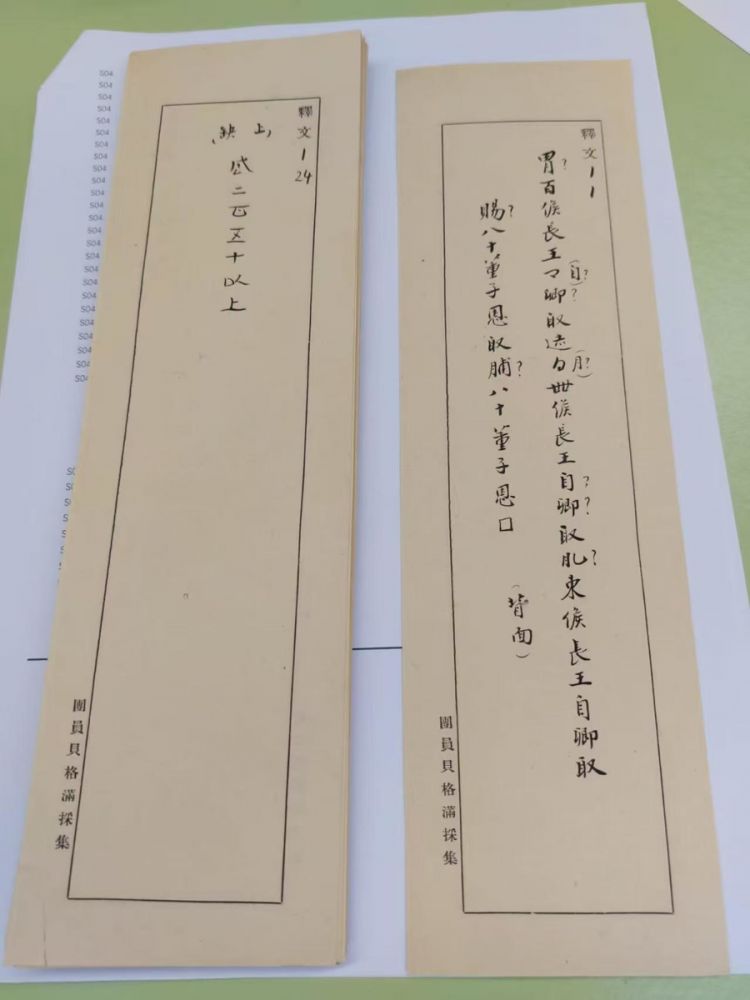 釋文 1 24
(上缺)
二百五十以上
團員貝格滿採集
釋文 1 1
胃?百候長王卿?取候長王自?卿?取肌?東候長王自卿取
(自?)
(月?)
賜?八十董子恩取脯?八十董子恩口
(背面)
團員貝格滿採集
S04
S04
S04
S04
S04
S04
S04
S04
S04
S04
S04
S04
S04
S04
S04
S04
S04
S04
S04
S04
S04
S04
S04
S04
S04
S04